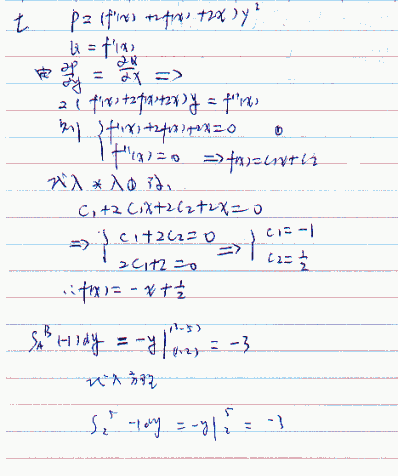 P=(f'(x)+2f(x)+2x)y²
Q=f'(x)
由 ∂P/∂y = ∂Q/∂x =>
2(f'(x)+2f(x)+2x)y=f''(x)
则 { f'(x)+2f(x)+2x=0 ①
f''(x)=0 => f(x)=C₁x+C₂
代入①得,
C₁+2C₁x+2C₂+2x=0
=> { C₁+2C₂=0 => { C₁=-1
2C₁+2=0 C₂=1/2
∴f(x)=-x+1/2
∫_A^B (-1)dy = -y|_(1,2)^(3,5) = -3
∫₂⁵ -1dy = -y|₂⁵ = -3